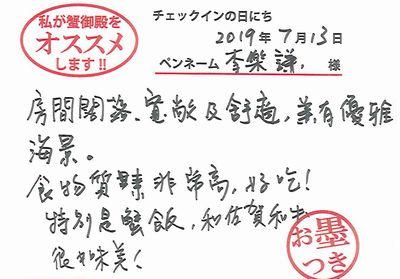 私が蟹御殿を
オススメ
します!!
チェックインの日にち
2019年7月13日
ペンネーム 李樂謙. 様
房間闊落、寬敞及舒適，兼有優雅
海景。
食物質素非常高，好吃!
特別是蟹飯，和佐賀和牛
很美味!
お墨
つき